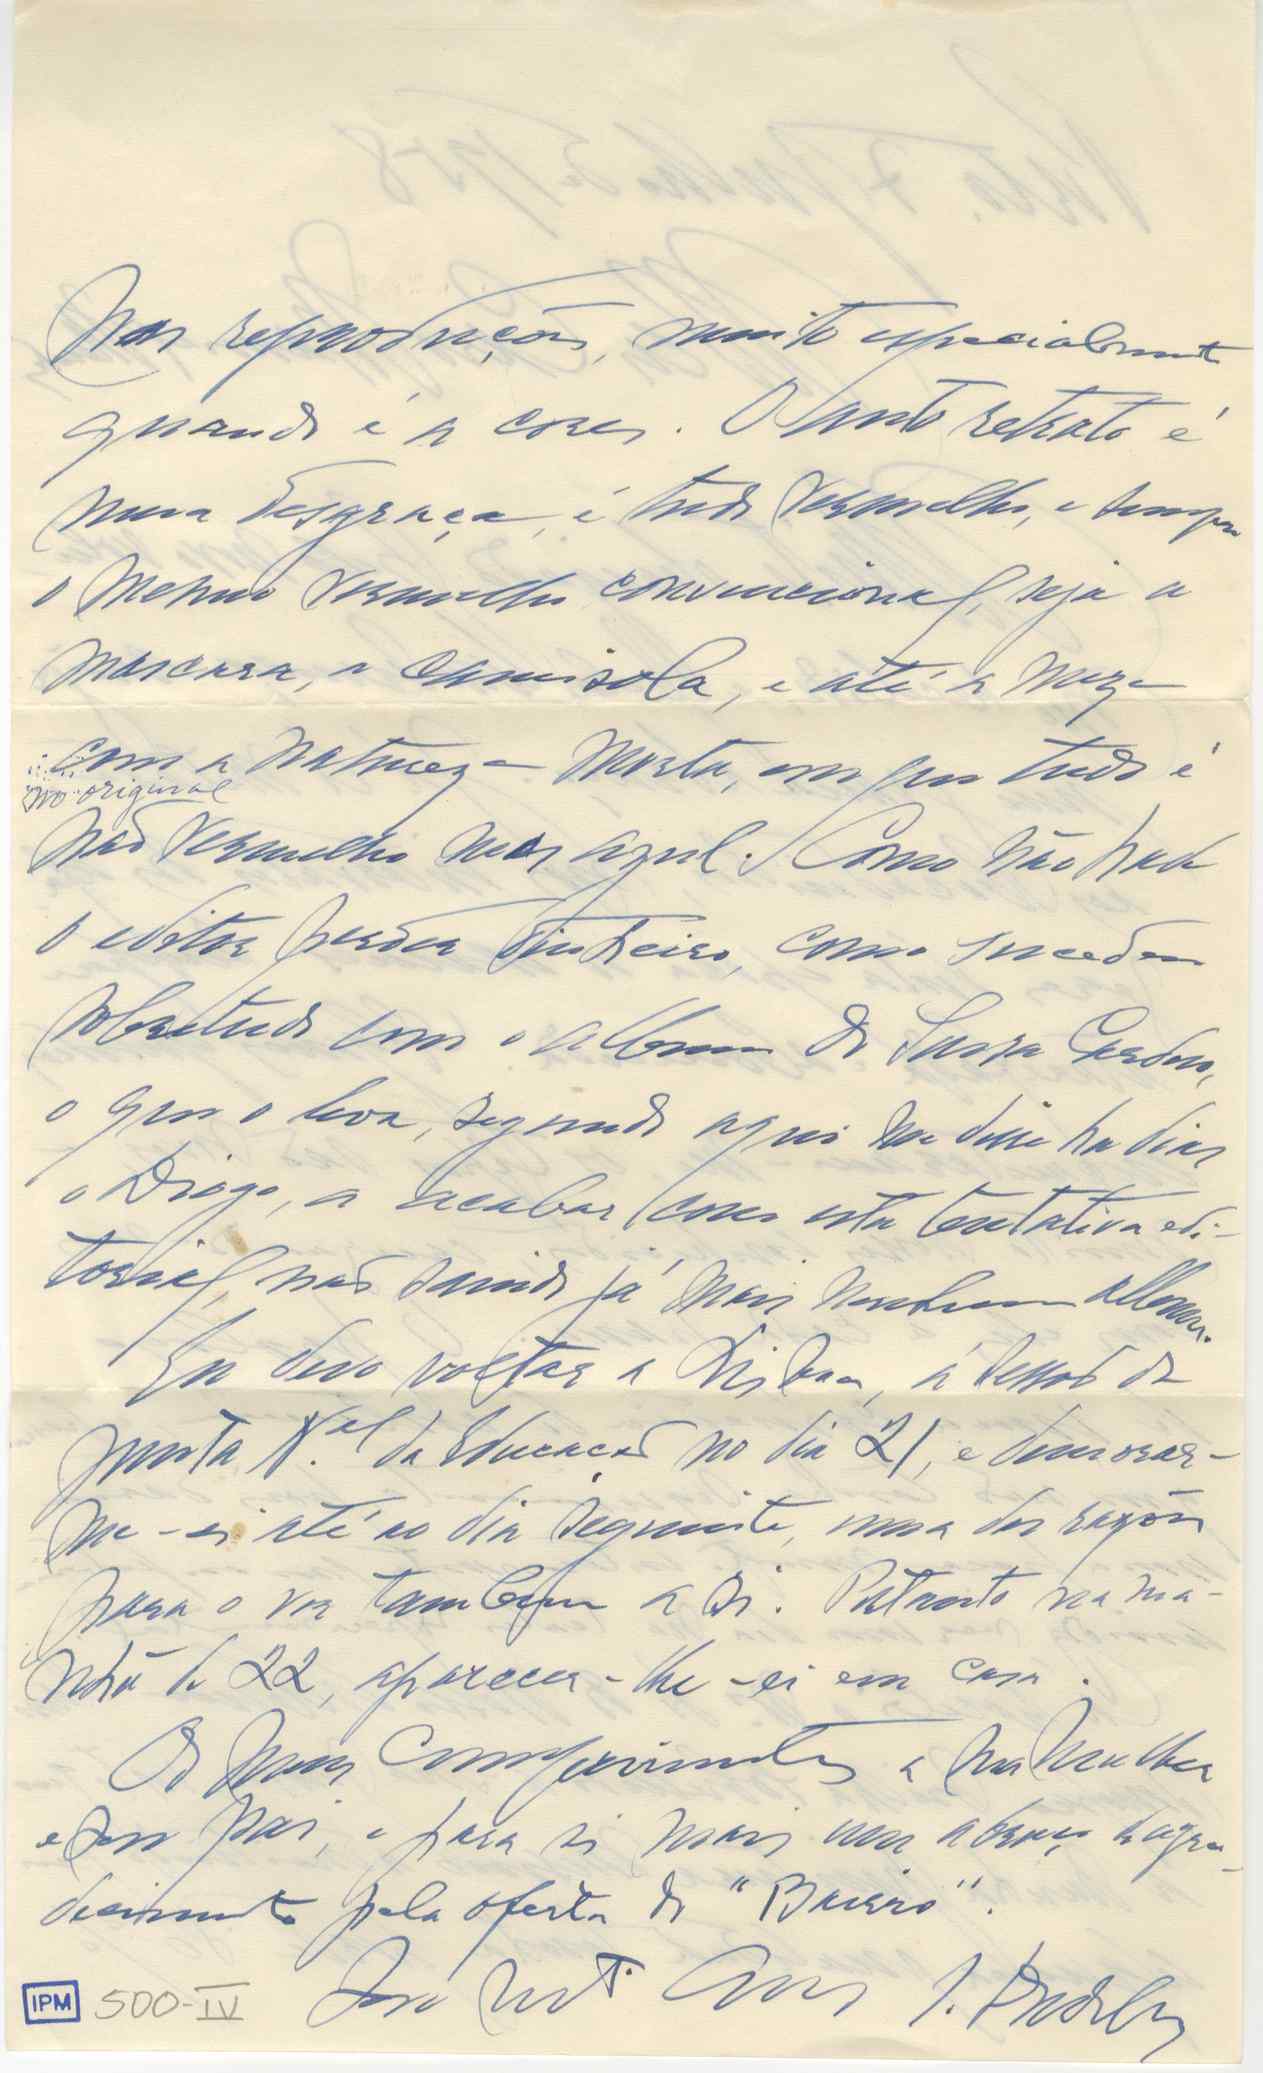 nas reproduções, muito especialmente
quando é a cores. O auto retrato é
uma desgraça, é tudo vermelho, e sempre
o mesmo vermelho convencional, seja a
mascara, a camisola, e até a meza
com a natureza morta, em que tudo é
no original
não vermelho mas azul. Como não hade
o editor perder dinheiro, como sucedeu
sobretudo com o album do Souza Cardoso,
o que o leva, segundo aqui me disse ha dias
o Diogo, a acabar com esta tentativa edi-
torial, não saindo já mais nenhum album.
Eu devo voltar a Lisboa, á sessão da
Junta N.al da Educação no dia 21, e demorar-
me-ei até ao dia seguinte, uma das razões
para o ver tambem a si. Portanto na ma-
nhã de 22, aparecer-lhe-ei em casa.
Os meus comprimentos a sua mulher
e seu pai, e para si mais um abraço de agra-
decimento pela oferta do "Bairro".
IPM 500-IV